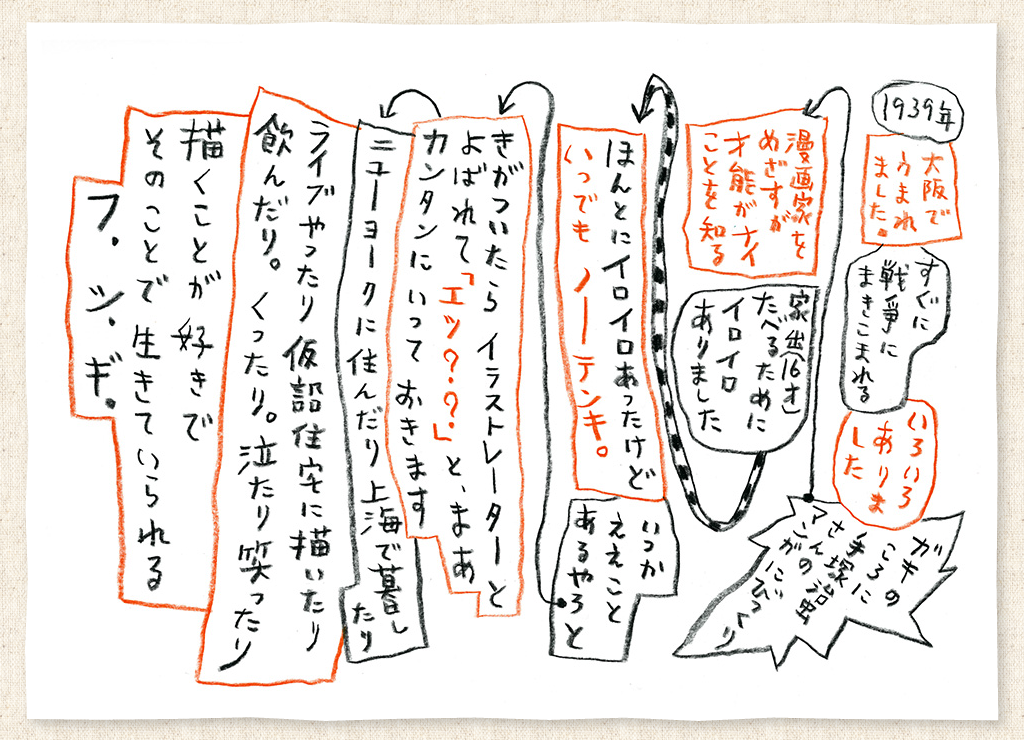 1939年
大阪で
うまれ
ました。
すぐに
戦争に
まきこまれる
いろいろ
ありま
した
ガキの
ころに
手塚治虫
さんの
マンガにびっくり
漫画家を
めざすが
才能がナイ
ことを知る
家出(16才)
たべるために
イロイロ
ありました
ほんとにイロイロあったけど
いつでもノーテンキ。
いつか
ええこと
あるやろと
きがついたら イラストレーターと
よばれて「エッ???」と、まあ
カンタンにいっておきます
ニューヨークに住んだり 上海で暮し
たり
ライブやったり 仮設住宅に描いたり
飲んだり。くったり。泣たり笑ったり
描くことが好きで
そのことで生きていられる
フ.シ.ギ.